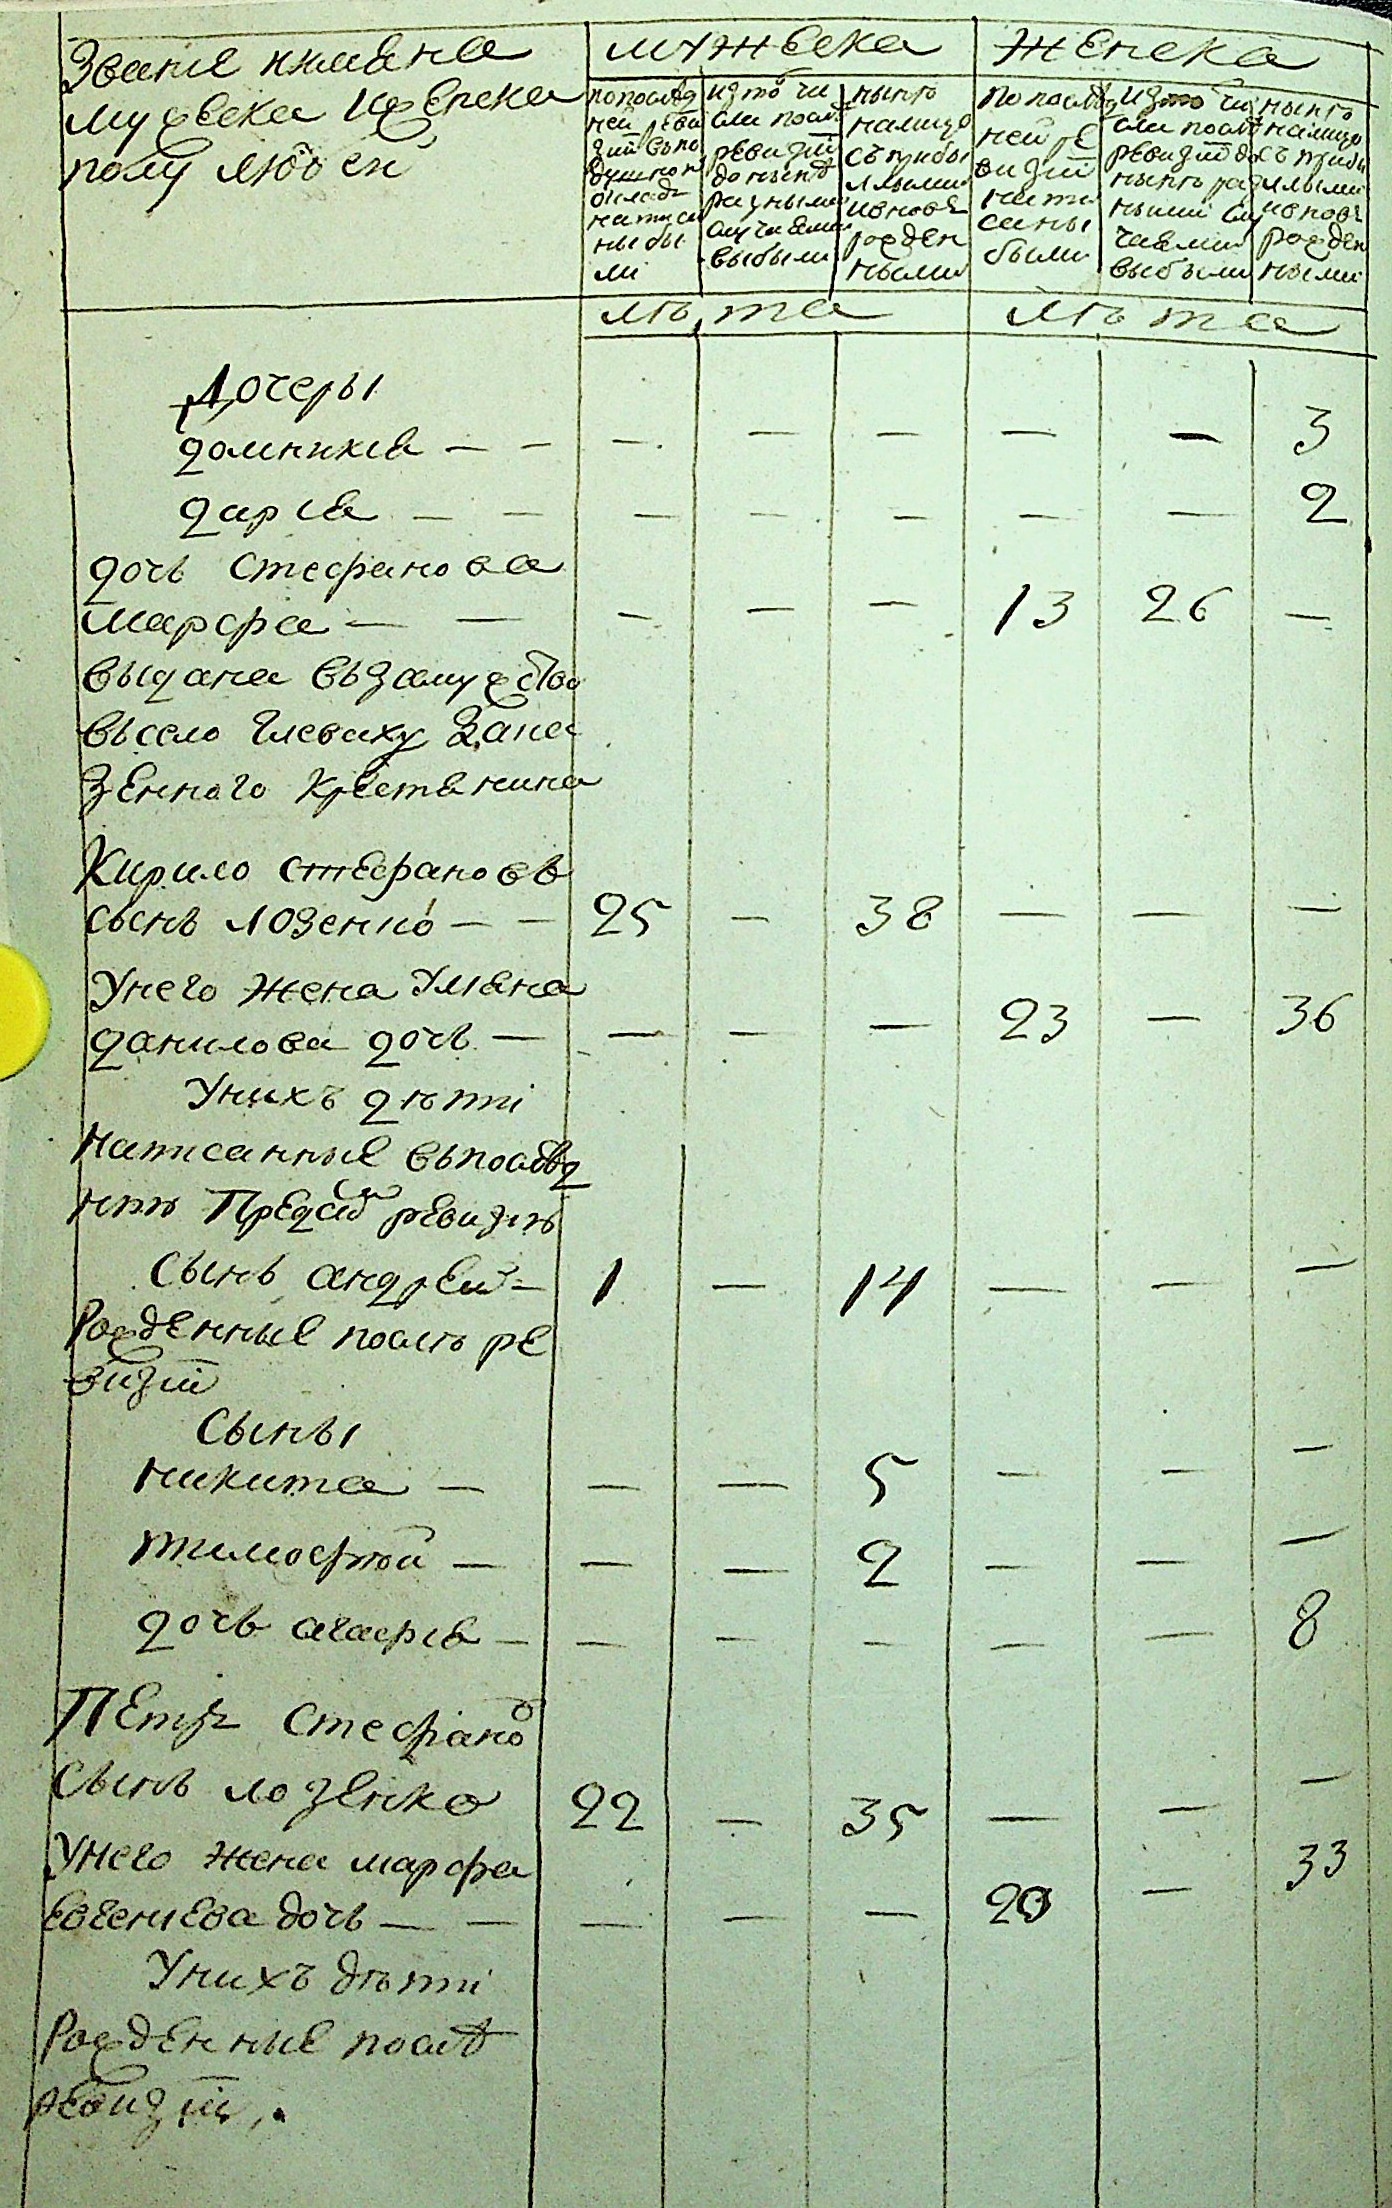 Званіе имяна
мужвска иженска
полу людей
мужвска
женска
попослед
ней реви
зии въпо
душном
окладе
написа
ны бы
ли
изтог чи
сла посл
ревизїи
до нынѣ
разными
случаями
выбыли
нынѣ
налицо
съ прибы
лыми
иновъ
рожден
ными
попослед
ней ре
визїи
напи
саны
были
изтого чи
сла послѣ
ревизїи до
нынѣ раз
ными слу
чаями
выбыли
нынѣ
налицо
съ прибы
лыми
иновъ
рожден
ными
лѣта
лѣта
Дочеры
домникїя — — — — — — — 3
дарїя — — — — — — — 2
дочь Стефанова
марфа — — — — — 13 26 —
выдана възамужство
въсело Глеваху Зака
зенного крестянина
Кирило стефановъ
сынъ лозенко — — 25 — 38 — — —
Унего жена Уляна
данилова дочь — — — — 23 — 36
Унихъ дѣти
написанные въпослѣд
нѣй пред сей ревизїи
сынъ андрей — 1 — 14 — — —
Рожденные послѣ ре
визїи
сыны
никита — — — 5 — — —
тимофѣй — — — 2 — — —
дочь агафїя — — — — — — 8
Петръ Стефанов
сынъ лозенко 22 — 35 — — —
Унего жена марфа
евгениева дочь — — — — — 20 — 33
Унихъ дѣти
Рожденные послѣ
ревизїи